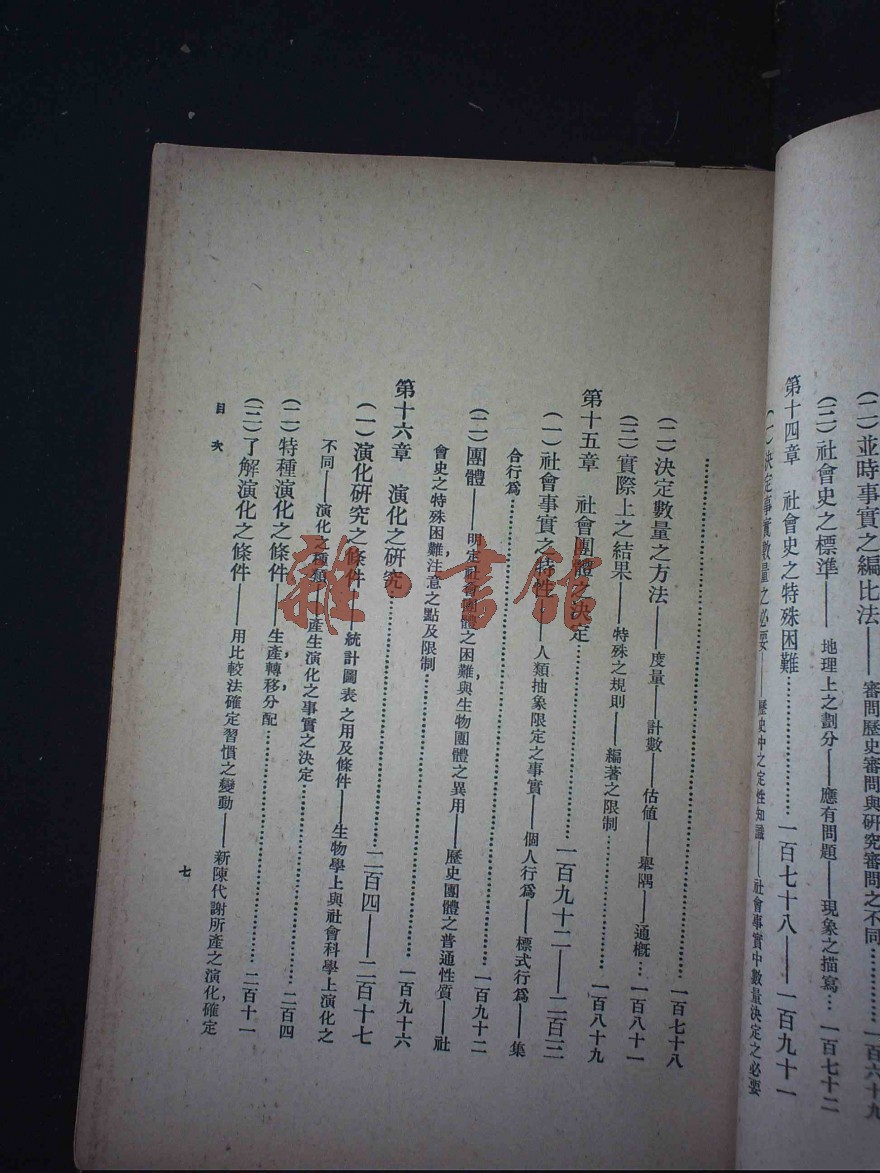 (二)並時事實之編比法——審問歷史審問與研究審問之不同…………一百六十九
(三)社會史之標準——地理上之劃分——應有問題——現象之描寫…一百七十二
第十四章 社會史之特殊困難…………一百七十八——一百九十一
(一)決定事實數量之必要——歷史中之定性知識——社會事實中數量決定之必要
…………一百七十八
(二)決定數量之方法——度量——計數——估値——舉隅——通概…一百八十一
(三)實際上之結果——特殊之規則——編著之限制…………一百八十九
第十五章 社會團體之決定…………一百九十二——二百三
(一)社會事實之特性——人類抽象限定之事實——個人行爲——標式行爲——集
合行爲…………一百九十二
(二)團體——明定社會團體之困難,與生物團體之異用——歷史團體之普通性質——社
會史之特殊困難,注意之點及限制…………一百九十六
第十六章 演化之研究…………二百四——二百十七
(一)演化研究之條件——統計圖表之用及條件——生物學上與社會科學上演化之
不同——演化之種類——產生演化之事實之決定…………二百四
(二)特種演化之條件——生產,轉移,分配…………二百十一
(三)了解演化之條件——用比較法確定習慣之變動——新陳代謝所產之演化,確定
目次
七
雜·書館